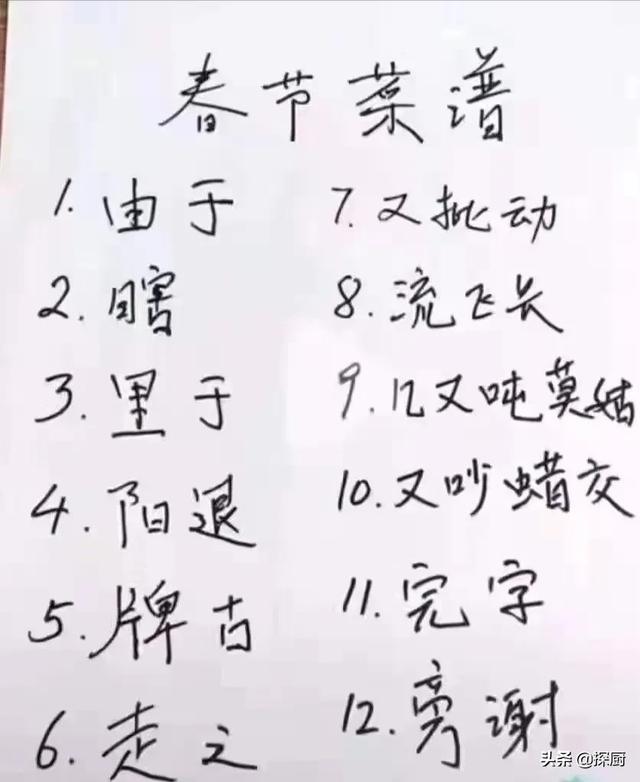 春节菜谱
1. 由于
2. 瞎
3. 里于
4. 阳退
5. 牌古
6. 走之
7. 又批动
8. 流飞长
9. 几又吨莫姑
10. 又吵蜡交
11. 完字
12. 旁谢
头条 @探厨